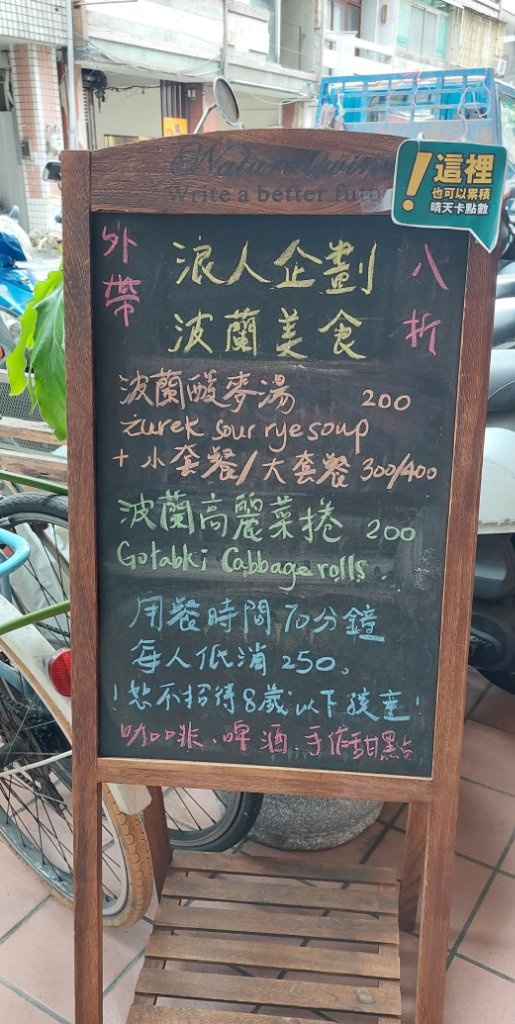 Write a better futu
這裡
也可以累積
晴天卡點數
外帶
八折
浪人企劃
波蘭美食
波蘭酸麥湯 200
żurek sour rye soup
+ 小套餐/大套餐 300/400
波蘭高麗菜捲 200
Gołabki Cabbage rolls
用餐時間70分鐘
每人低消250。
!恕不招待8歲以下孩童!
咖啡.啤酒.手作甜點